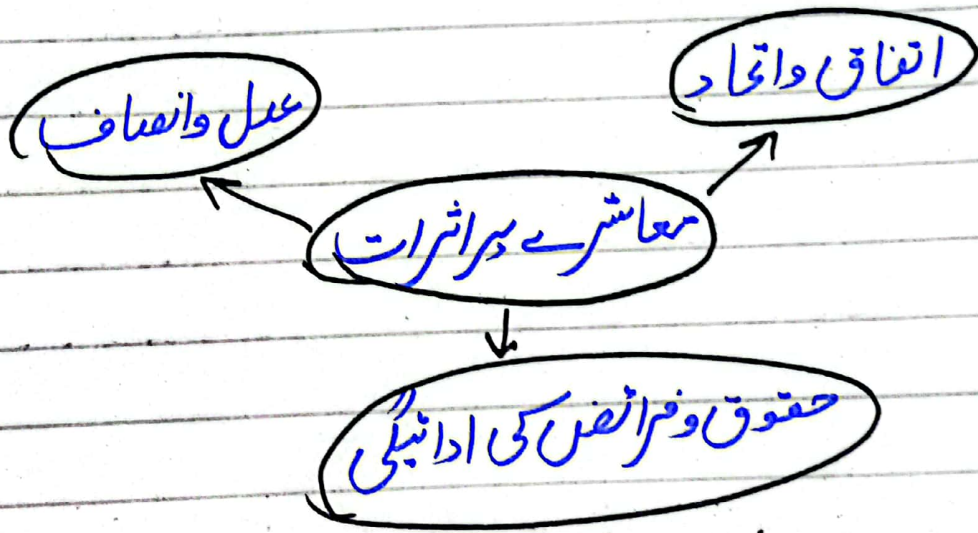 اتفاق واتحاد
عدل وانصاف
معاشرے پر اثرات
حقوق وفرائض کی ادائیگی